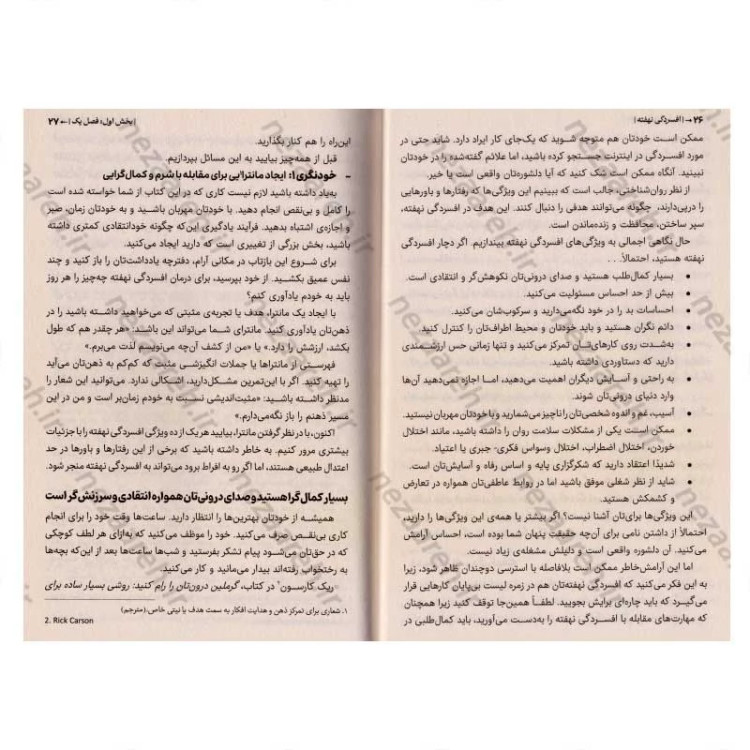 ۲۶ → | افسردگی نهفته |
ممکن است خودتان هم متوجه شوید که یک‌جای کار ایراد دارد. شاید حتی در
مورد افسردگی در اینترنت جستجو کرده باشید، اما علائم گفته‌شده را در خودتان
نبینید. آنگاه ممکن است شک کنید که آیا دلشوره‌تان واقعی است یا خیر.
از نظر روان‌شناختی، جالب است که ببینیم این ویژگی‌ها که رفتارها و باورهایی
را درپی‌دارند، چگونه می‌توانند هدفی را دنبال کنند. این هدف در افسردگی نهفته،
سپر ساختن، محافظت و زنده‌ماندن است.
حال نگاهی اجمالی به ویژگی‌های افسردگی نهفته بیندازیم. اگر دچار افسردگی
نهفته هستید، احتمالاً. . .
• بسیار کمال‌طلب هستید و صدای درونی‌تان نکوهش‌گر و انتقادی است.
• بیش از حد احساس مسئولیت می‌کنید.
• احساسات بد را در خود نگه‌می‌دارید و سرکوب‌شان می‌کنید.
• دائم نگران هستید و باید خودتان و محیط اطراف‌تان را کنترل کنید.
• به‌شدت روی کارهای‌تان تمرکز می‌کنید و تنها زمانی حس ارزشمندی
دارید که دستاوردی داشته باشید.
• به راحتی و آسایش دیگران اهمیت می‌دهید، اما اجازه نمی‌دهید آن‌ها
وارد دنیای درونی‌تان شوند.
• آسیب، غم و اندوه شخصی‌تان را ناچیز می‌شمارید و با خودتان مهربان نیستید.
• ممکن است یکی از مشکلات سلامت روان را داشته باشید، مانند اختلال
خوردن، اختلال اضطراب، اختلال وسواس فکری- جبری یا اعتیاد.
• شدیدًا اعتقاد دارید که شکرگزاری پایه و اساس رفاه و آسایش‌تان است.
• شاید از نظر شغلی موفق باشید اما در روابط عاطفی‌تان همواره در تعارض
و کشمکش هستید.
این ویژگی‌ها برای‌تان آشنا نیست؟ اگر بیشتر یا همه‌ی این ویژگی‌ها را دارید،
احتمالاً از داشتن نامی برای آن‌چه حقیقت پنهان شما بوده است، احساس آرامش
می‌کنید. آن دلشوره واقعی است و دلیلش مشغله‌ی زیاد نیست.
اما این آرامش‌خاطر ممکن است بلافاصله با استرسی دوچندان ظاهر شود، زیرا
به این فکر می‌کنید که افسردگی نهفته‌تان هم در زمره لیست بی‌پایان کارهایی قرار
می‌گیرد که باید چاره‌ای برایش بجویید. لطفاً همین‌جا توقف کنید زیرا همچنان
که مهارت‌های مقابله با افسردگی نهفته را به‌دست می‌آورید، باید کمال‌طلبی در
| بخش اول؛ فصل یک | ← ۲۷
این‌راه را هم کنار بگذارید.
قبل از همه‌چیز بیایید به این مسائل بپردازیم.
- خودنگری۱: ایجاد مانترایی برای مقابله با شرم و کمال‌گرایی
به‌یاد داشته باشید لازم نیست کاری که در این کتاب از شما خواسته شده
را کامل و بی‌نقص انجام دهید. با خودتان مهربان باشید و به خودتان زمان، صبر
و اجازه‌ی اشتباه بدهید. فرآیند یادگیری این‌که چگونه خودانتقادی کمتری داشته
باشید، بخش بزرگی از تغییری است که دارید ایجاد می‌کنید.
برای شروع این بازتاب در مکانی آرام، دفترچه یادداشت‌تان را باز کنید و چند
نفس عمیق بکشید. از خود بپرسید، برای درمان افسردگی نهفته چه‌چیز را هر روز
باید به خودم یادآوری کنم؟
با ایجاد یک مانترا، هدف یا تجربه‌ی مثبتی که می‌خواهید داشته باشید را در
ذهن‌تان یادآوری کنید. مانترای شما می‌تواند این باشند: «هر چقدر هم که طول
بکشد، ارزشش را دارد.» یا «من از کشف آن‌چه می‌نویسم لذت می‌برم.»
فهرستی از مانتراها یا جملات انگیزشی مثبت که کم‌کم به ذهن‌تان می‌آید
را تهیه کنید. اگر با این‌تمرین مشکل‌دارید، اشکالی ندارد. می‌توانید این شعار را
مدنظر داشته باشید: «مثبت‌اندیشی نسبت به خودم زمان‌بر است و من در این
مسیر ذهنم را باز نگه‌می‌دارم.»
اکنون، با در نظر گرفتن مانترا، بیایید هر یک از ده ویژگی افسردگی نهفته را با جزئیات
بیشتری مرور کنیم. به خاطر داشته باشید که برخی از این رفتارها و باورها در حد
اعتدال طبیعی هستند، اما اگر رو به افراط برود می‌تواند به افسردگی نهفته منجر شود.
بسیار کمال‌گرا هستید و صدای درونی‌تان همواره انتقادی و سرزنش‌گر است
همیشه از خودتان بهترین‌ها را انتظار دارید. ساعت‌ها وقت خود را برای انجام
کاری بی‌نقص صرف می‌کنید. خود را موظف می‌کنید که به‌ازای هر لطف کوچکی
که در حق‌تان می‌شود پیام تشکر بفرستید و شب‌ها ساعت‌ها بعد از این‌که بچه‌ها
به رختخواب رفته‌اند بیدار می‌مانید و کار می‌کنید.
"ریک کارسون" در کتاب، گرملین درون‌تان را رام کنید: روشی بسیار ساده برای
۱. شعاری برای تمرکز ذهن و هدایت افکار به سمت هدف یا نیتی خاص. (مترجم)
2. Rick Carson
nezaareh.ir